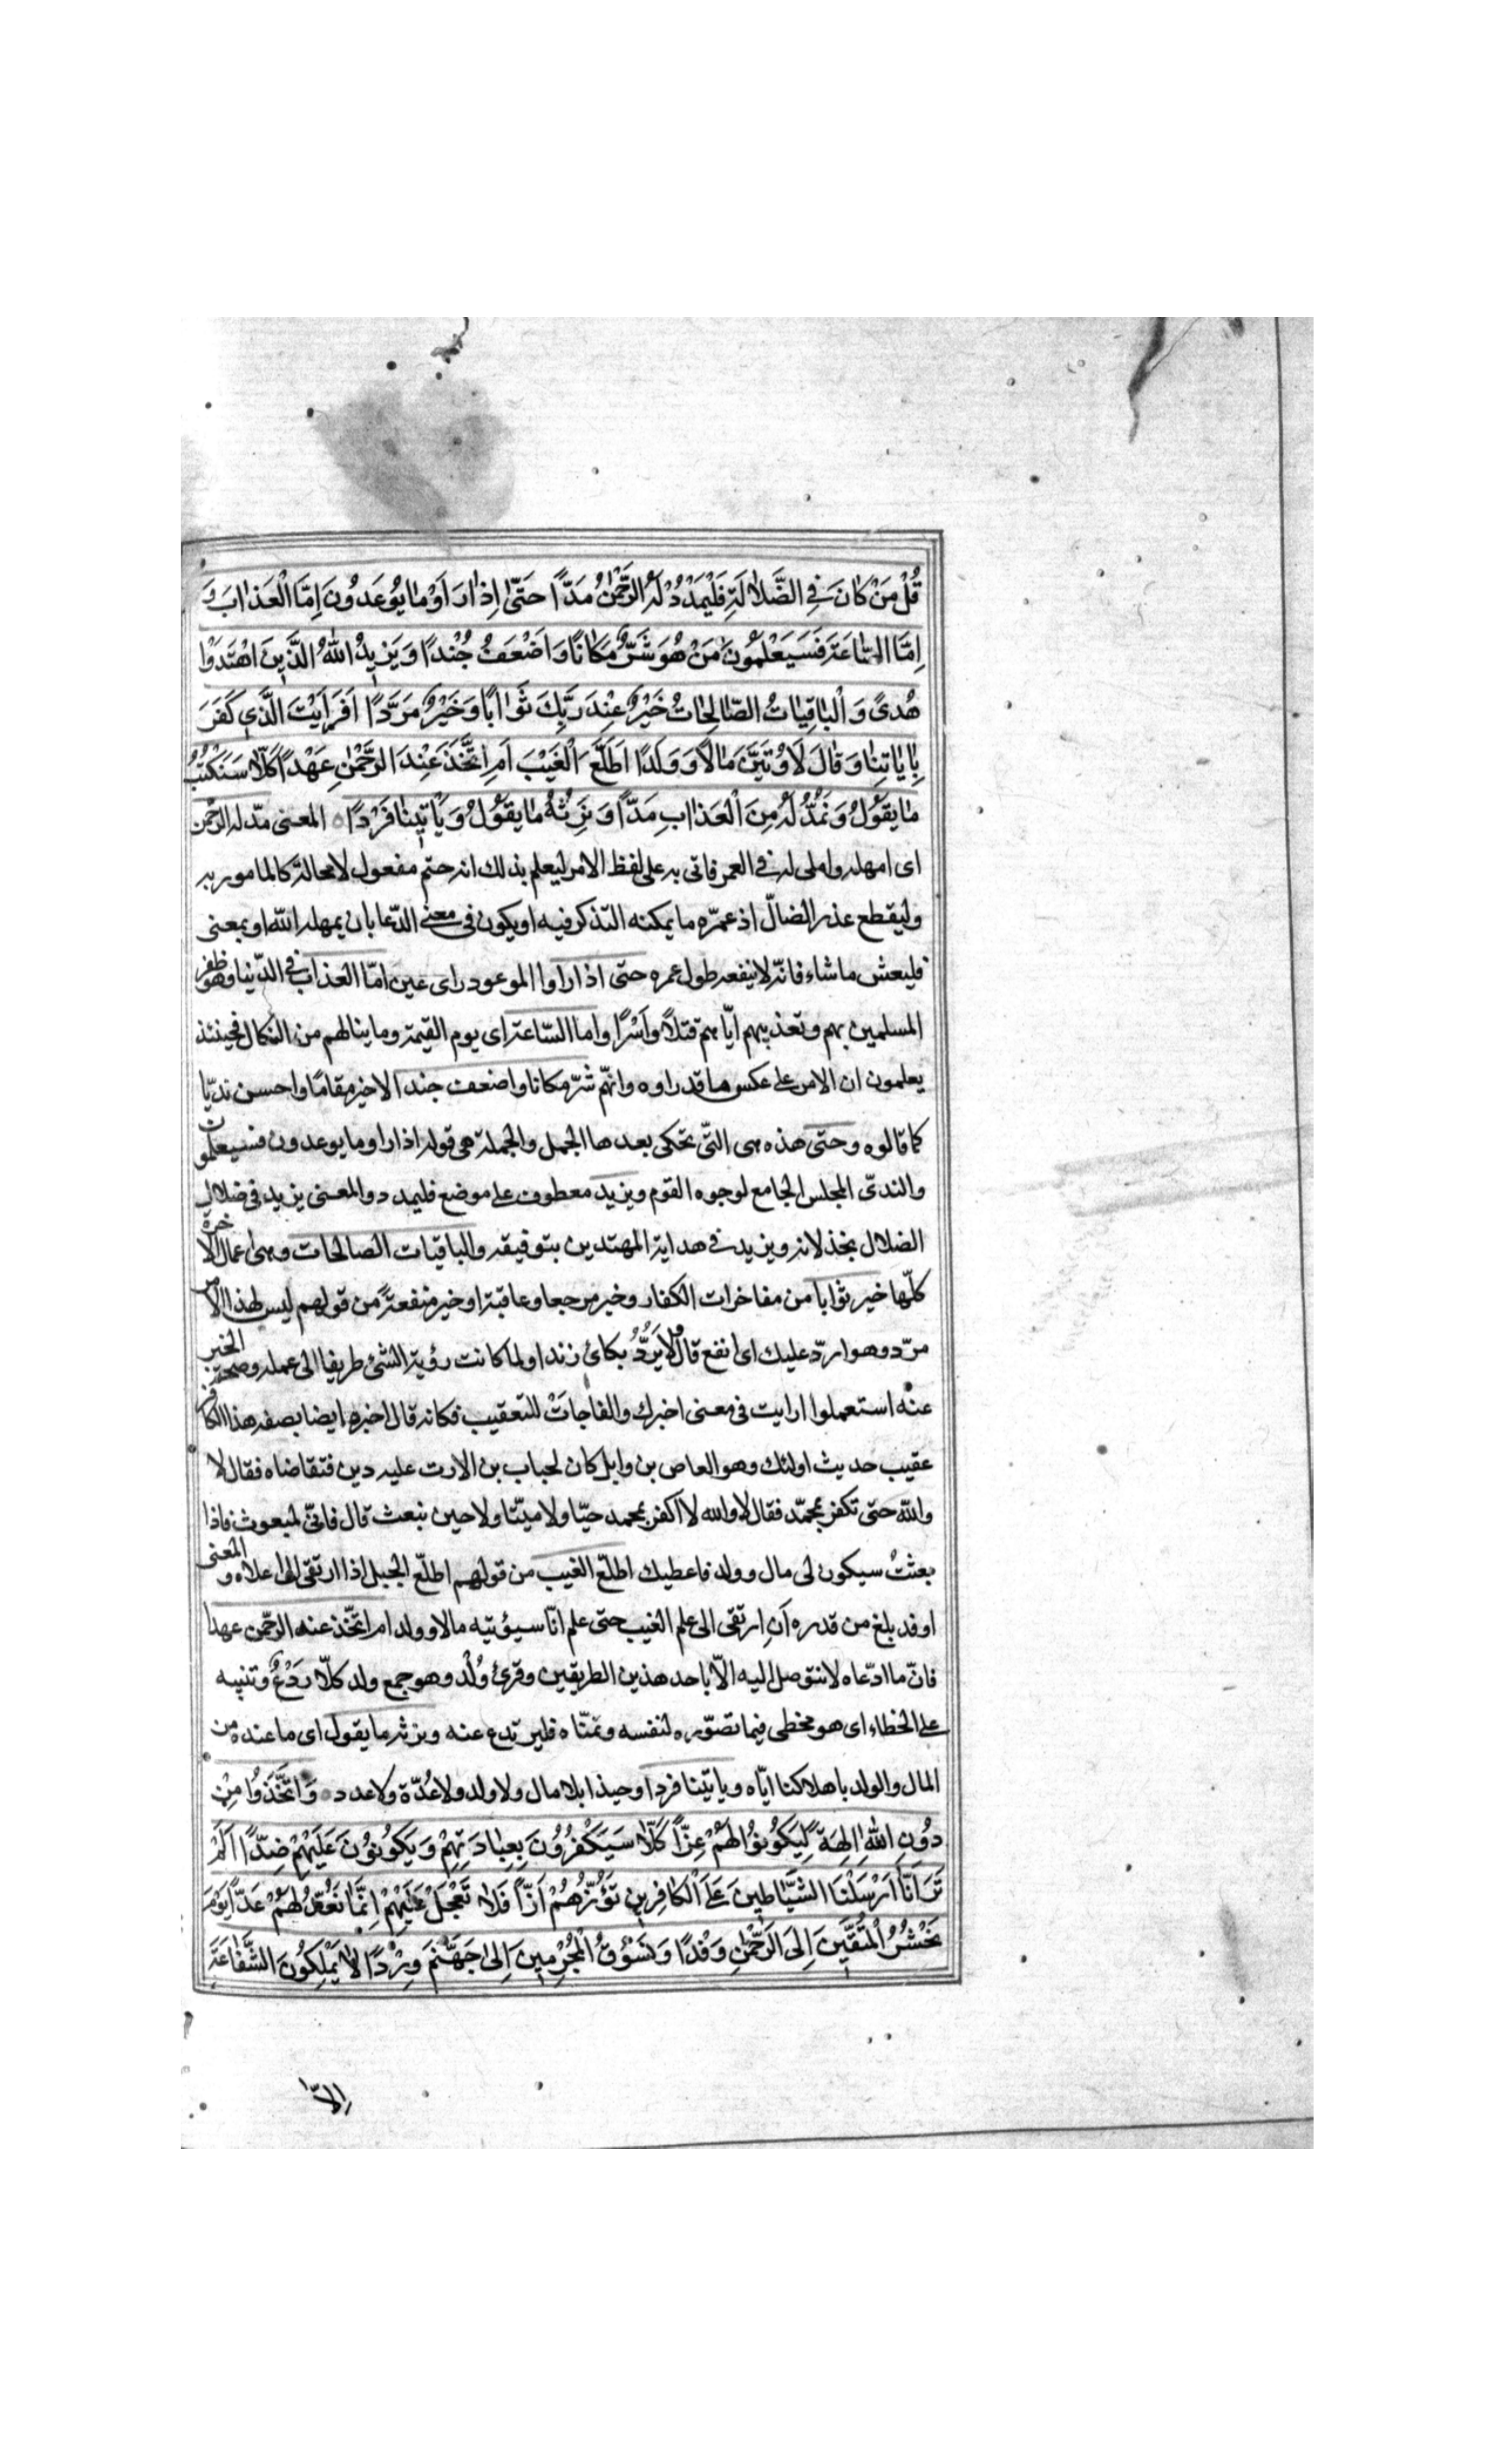 قُلْ مَنْ كَانَ فِي الضَّلَالَةِ فَلْيَمْدُدْ لَهُ الرَّحْمٰنُ مَدًّا حَتّٰى اِذَا رَاَوْا مَا يُوعَدُونَ اِمَّا الْعَذَابَ وَ
اِمَّا السَّاعَةَ فَسَيَعْلَمُونَ مَنْ هُوَ شَرٌّ مَكَانًا وَاَضْعَفُ جُنْدًا وَيَزِيدُ اللّٰهُ الَّذِينَ اهْتَدَوْا
هُدًى وَالْبَاقِيَاتُ الصَّالِحَاتُ خَيْرٌ عِنْدَ رَبِّكَ ثَوَابًا وَخَيْرٌ مَرَدًّا اَفَرَاَيْتَ الَّذِي كَفَرَ
بِاٰيَاتِنَا وَقَالَ لَاُوتَيَنَّ مَالًا وَوَلَدًا اَطَّلَعَ الْغَيْبَ اَمِ اتَّخَذَ عِنْدَ الرَّحْمٰنِ عَهْدًا كَلَّا سَنَكْتُبُ
مَا يَقُولُ وَنَمُدُّ لَهُ مِنَ الْعَذَابِ مَدًّا وَنَرِثُهُ مَا يَقُولُ وَيَأْتِينَا فَرْدًا ۝ المعنى مدّ له الرحمن
اى امهله واملى له فى العمر فاتى به على لفظ الامر ليعلم بذلك انه حتم مفعول لا محالة كالمامور به
وليقطع عذر الضالّ اذ عمّره ما يمكنه التذكر فيه او يكون فى معنى الدّعا بان يمهله اللّٰه او بمعنى
فليعش ما شاء فانّه لا ينفعه طول عمره حتى اذا راوا الموعود راى عين امّا العذاب فى الدّنيا وهو ظفر
المسلمين بهم وتعذيبهم ايّاهم قتلًا واَسْرًا واما السّاعة اى يوم القيمة وما ينالهم من النكال فحينئذ
يعلمون ان الامر على عكس ما قدراوه وانهّم شرّ مكانا واضعف جندا لاخير مقامًا واحسن نديّا
كما قالوه وحتى هذه هى التّى تحكى بعدها الجمل والجملة هى قوله اذا راو ما يوعدون فسيعلمون
والندىّ المجلس الجامع لوجوه القوم ويزيد معطوف على موضع فليمدد والمعنى يزيد فى ضلال
الضلال بخذلانه ويزيد فى هداية المهتدين بتوفيقه والباقيات الصالحات وهى اعمال الاخرة
كلّها خير ثوابا من مفاخرات الكفار وخير مرجعا وعاقبة او خير منفعة من قولهم ليس لهذا الامر
مردّ وهو اردّ عليك اى انفع قال ولا يَرُدُّ بكاىَ زندا ولما كانت رؤية الشئ طريقا الى عمله وصحة الخبر
عنه استعملوا ارايت فى معنى اخبرك والفا جاتْ للتعقيب فكانه قال اخبر ايضا بصفه هذا الكافر
عقيب حديث اولئك وهو العاص بن وايل كان لحباب بن الارت عليه دين فتقاضاه فقال لا
واللّه حتى تكفر بمحمّد فقال لا واللّه لا اكفر بمحمد حيّا ولا ميّتا ولا حين نبعث قال فانّى لمبعوث فاذا
بعثتُ سيكون لى مال وولد فاعطيك اطلّع الغيب من قولهم اطلّع الجبل اذا ارتقى الى اعلاه والمعنى
اوقد بلغ من قدره اَن ارتقى الى علم الغيب حتى علم انّا سيؤتيه مالا وولد ام اتّخذ عند الرحمن عهدا
فانّ ما ادّعاه لا نتوصل اليه الّا باحد هذين الطريقين وقرئ وُلْد وهو جمع ولد كلّا رَدْعٌ وتنبيه
على الخطاء اى هو مخطى فيما تصوّره لنفسه وتمنّاه فليرتدع عنه ونرثه ما يقول اى ما عنده من
المال والولد باهلاكنا ايّاه وياتينا فردا وحيدا بلا مال ولا ولد ولا عُدّة ولا عدد ۝ وَاتَّخَذُوا مِنْ
دُونِ اللّٰهِ اٰلِهَةً لِيَكُونُوا لَهُمْ عِزًّا كَلَّا سَيَكْفُرُونَ بِعِبَادَتِهِمْ وَيَكُونُونَ عَلَيْهِمْ ضِدًّا اَلَمْ
تَرَ اَنَّا اَرْسَلْنَا الشَّيَاطِينَ عَلَى الْكَافِرِينَ تَؤُزُّهُمْ اَزًّا فَلَا تَعْجَلْ عَلَيْهِمْ اِنَّمَا نَعُدُّ لَهُمْ عَدًّا يَوْمَ
نَحْشُرُ الْمُتَّقِينَ اِلَى الرَّحْمٰنِ وَفْدًا وَنَسُوقُ الْمُجْرِمِينَ اِلٰى جَهَنَّمَ وِرْدًا لَا يَمْلِكُونَ الشَّفَاعَةَ
اِلَّا